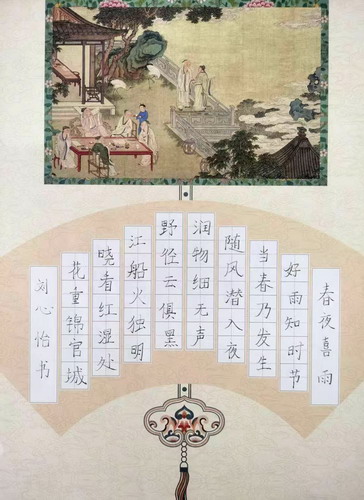 春夜喜雨
好雨知时节
当春乃发生
随风潜入夜
润物细无声
野径云俱黑
江船火独明
晓看红湿处
花重锦官城
刘心怡书